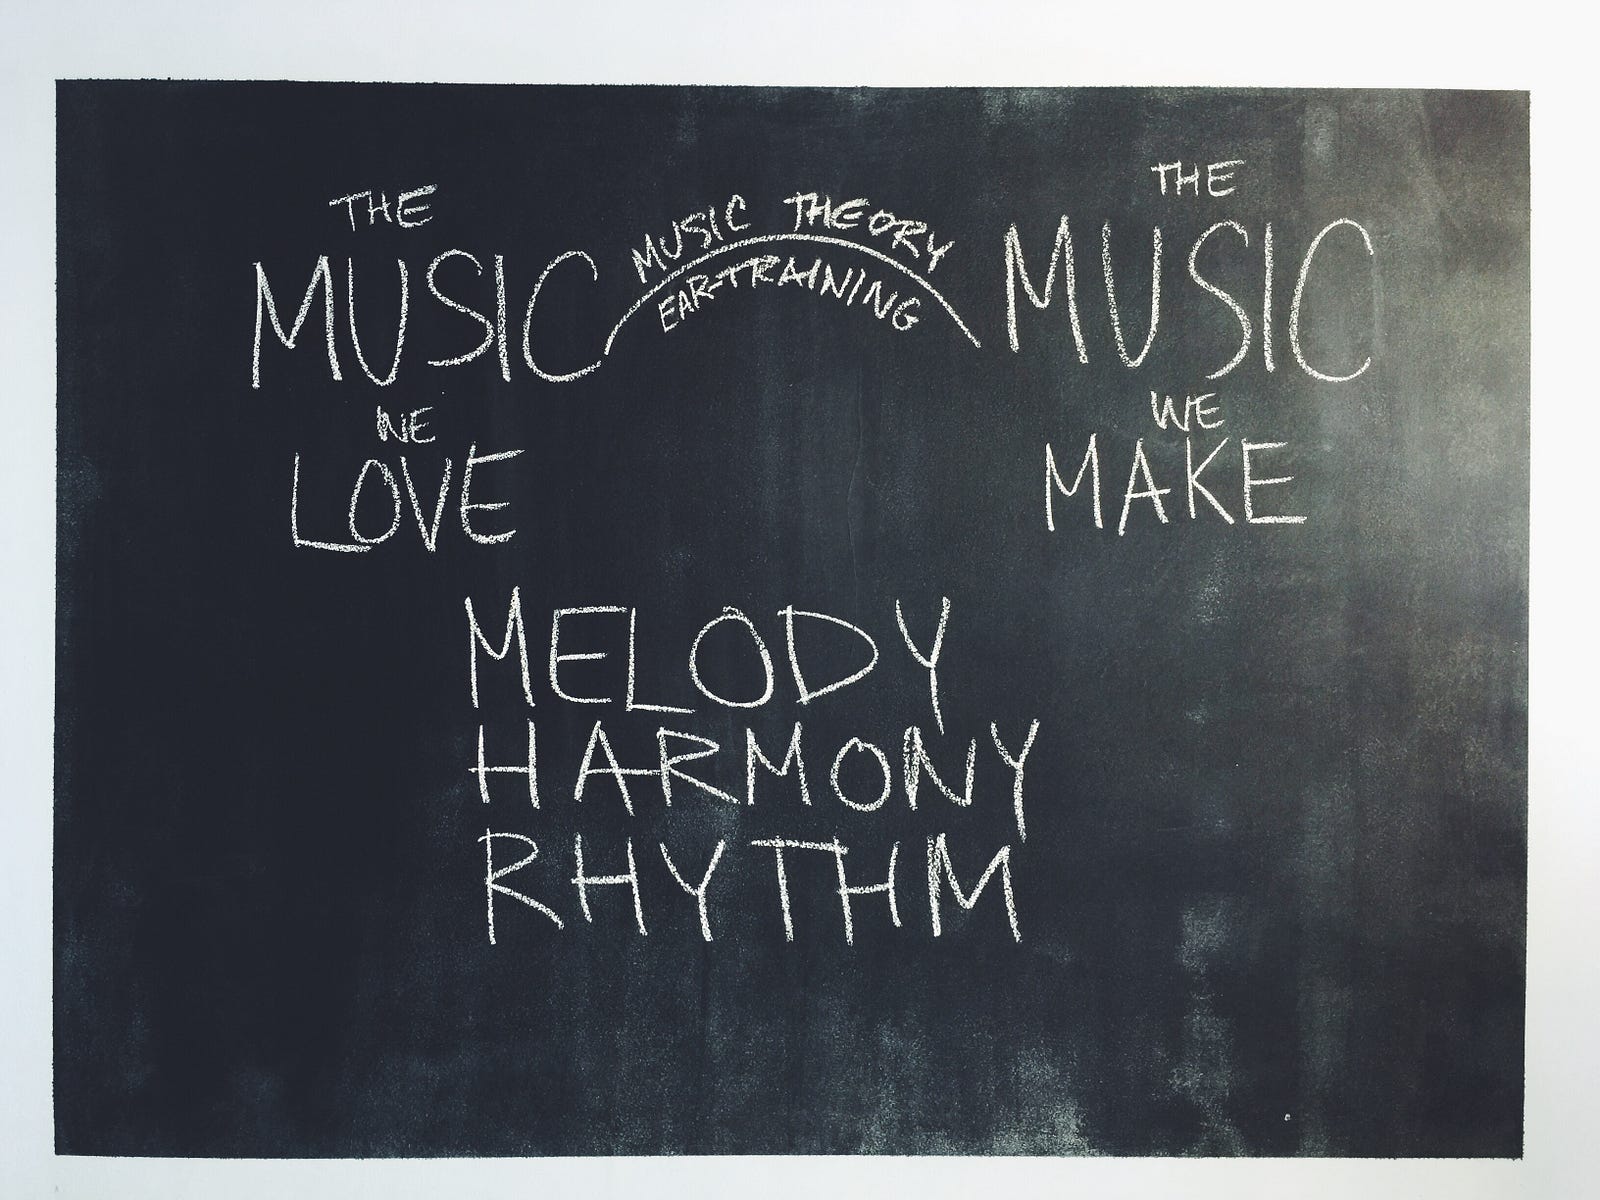 THE
MUSIC
WE
LOVE
MUSIC THEORY
EAR-TRAINING
THE
MUSIC
WE
MAKE
MELODY
HARMONY
RHYTHM